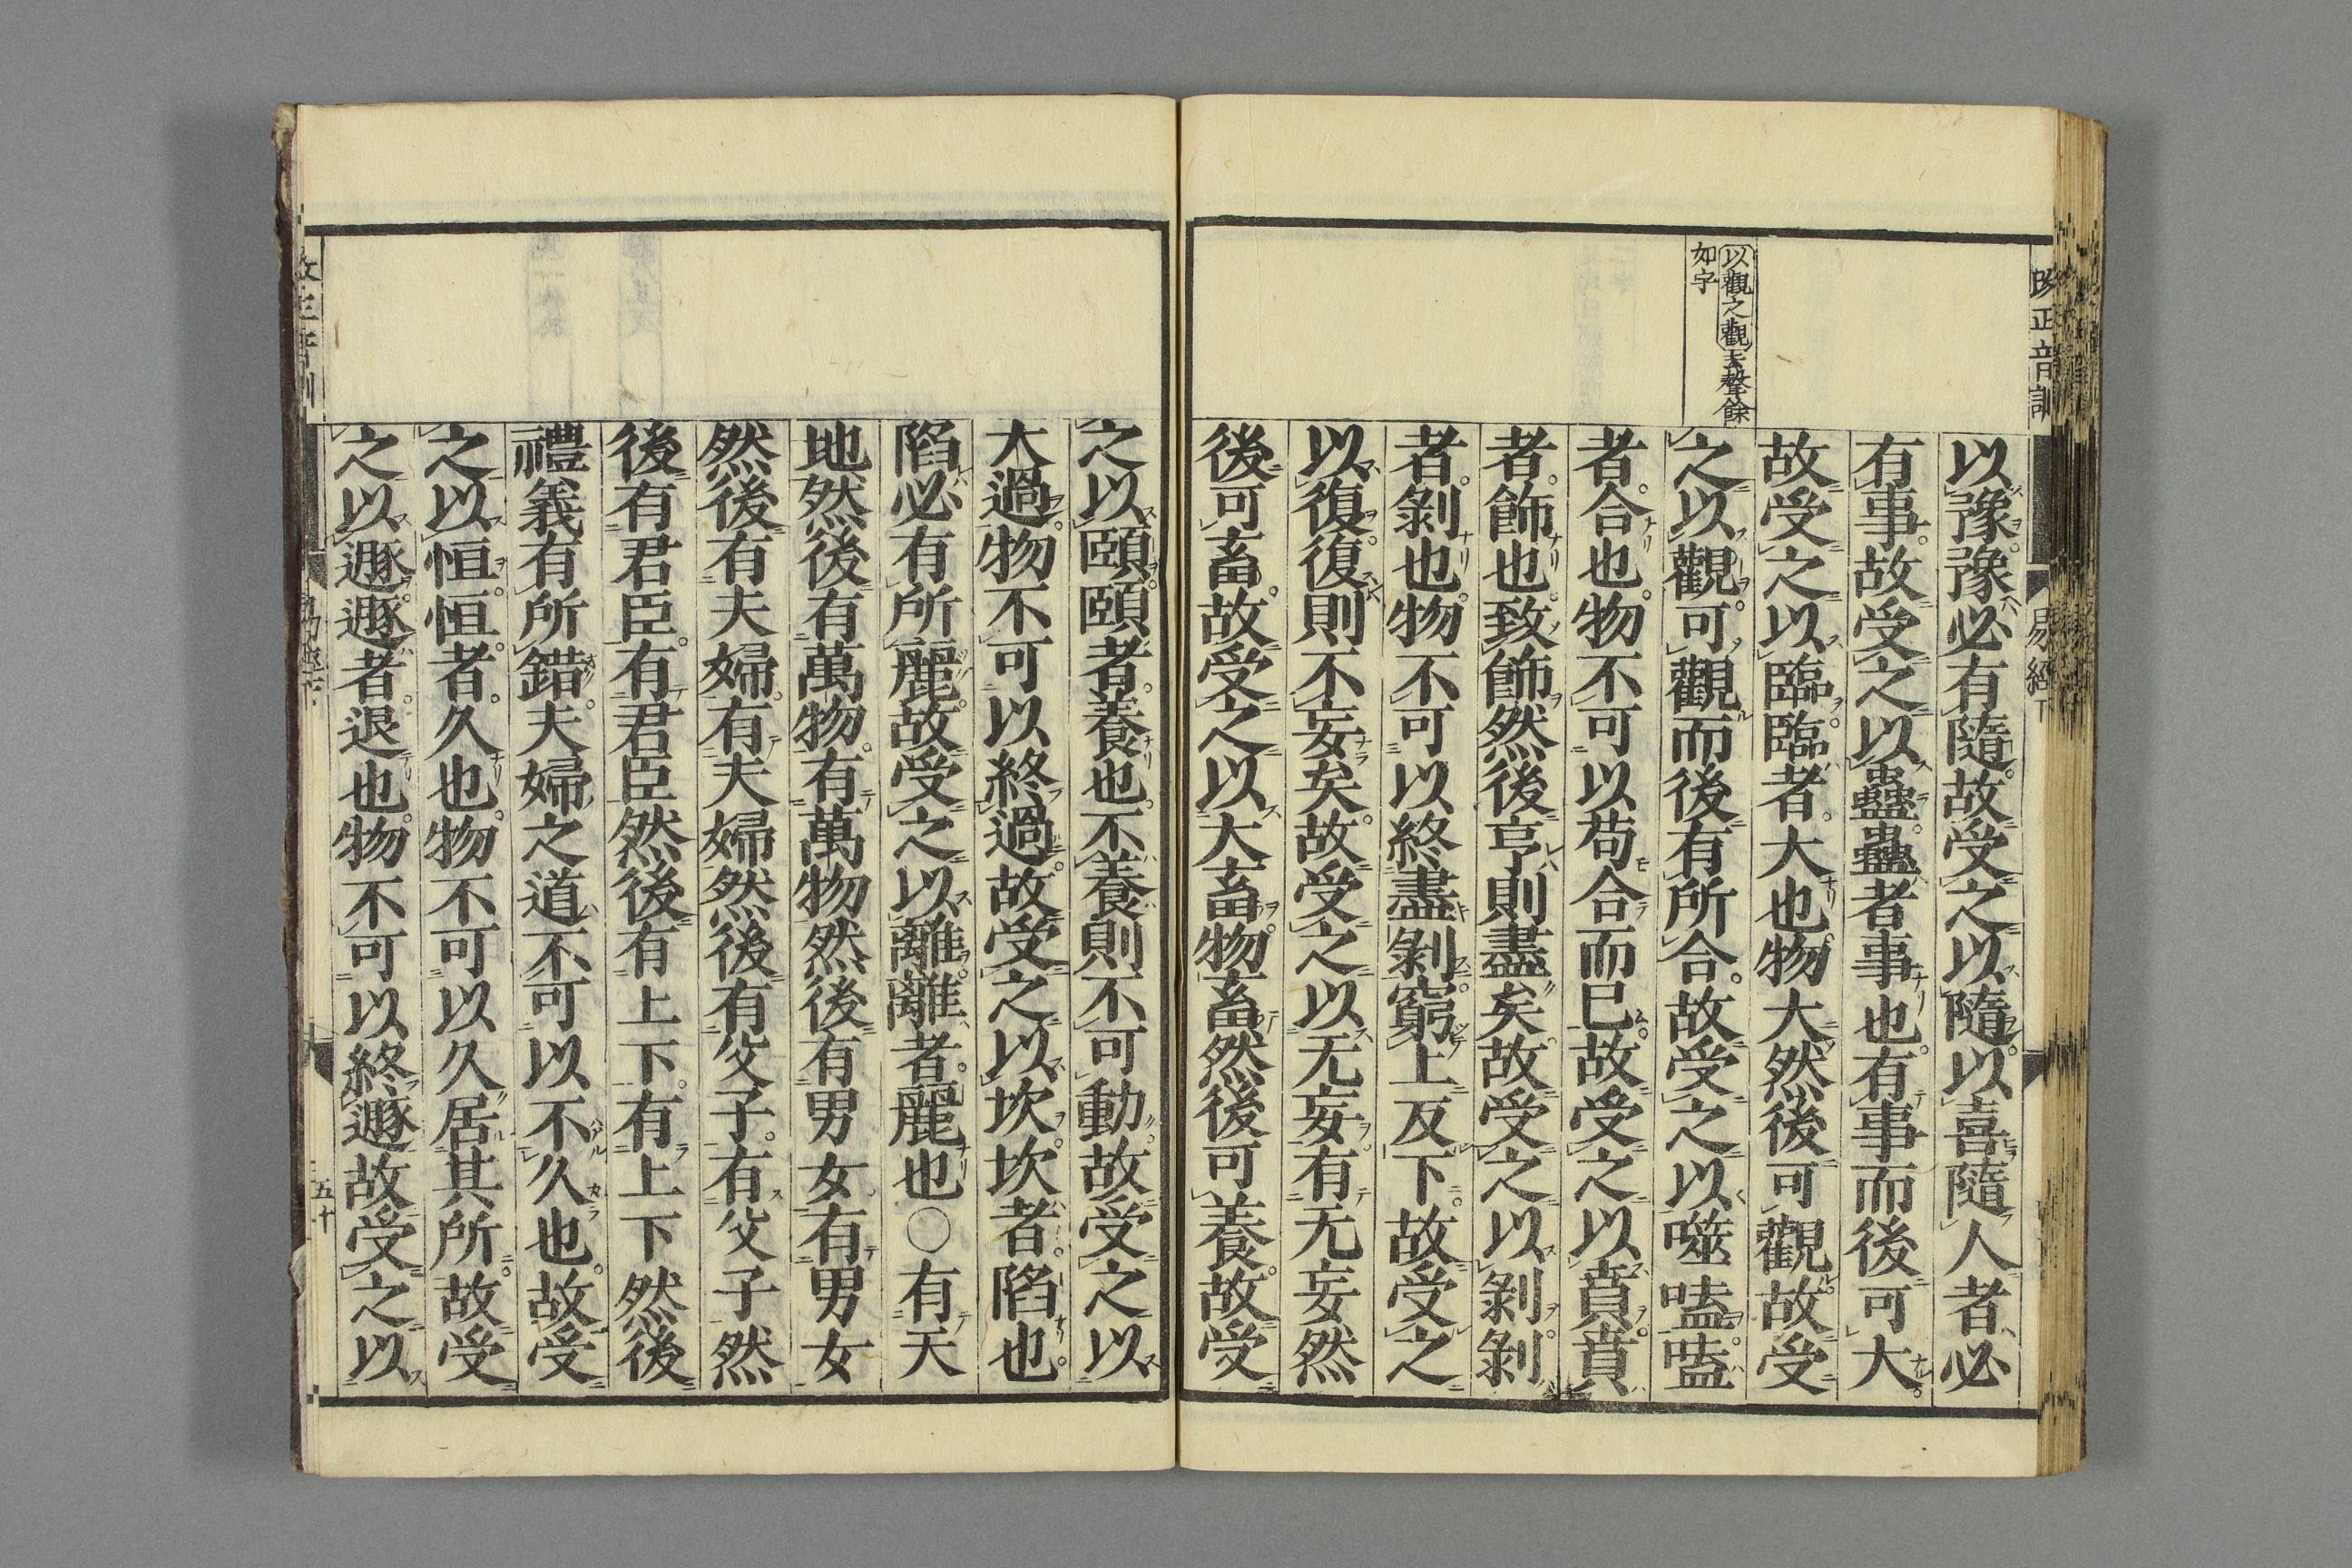 改正音訓
易經下
以觀之觀去聲餘
如字
以豫豫必有隨故受之以隨以喜隨人者必
有事故受之以蠱蠱者事也有事而後可大
故受之以臨臨者大也物大然後可觀故受
之以觀可觀而後有所合故受之以噬嗑嗑
者合也物不可以苟合而已故受之以賁賁
者飾也致飾然後亨則盡矣故受之以剝剝
者剝也物不可以終盡剝窮上反下故受之
以復復則不妄矣故受之以无妄有无妄然
後可畜故受之以大畜物畜然後可養故受
之以頤頤者養也不養則不可動故受之以
大過物不可以終過故受之以坎坎者陷也
陷必有所麗故受之以離離者麗也〇有天
地然後有萬物有萬物然後有男女有男女
然後有夫婦有夫婦然後有父子有父子然
後有君臣有君臣然後有上下有上下然後
禮義有所錯夫婦之道不可以不久也故受
之以恒恒者久也物不可以久居其所故受
之以遯遯者退也物不可以終遯故受之以
改正音訓
易經下
五十